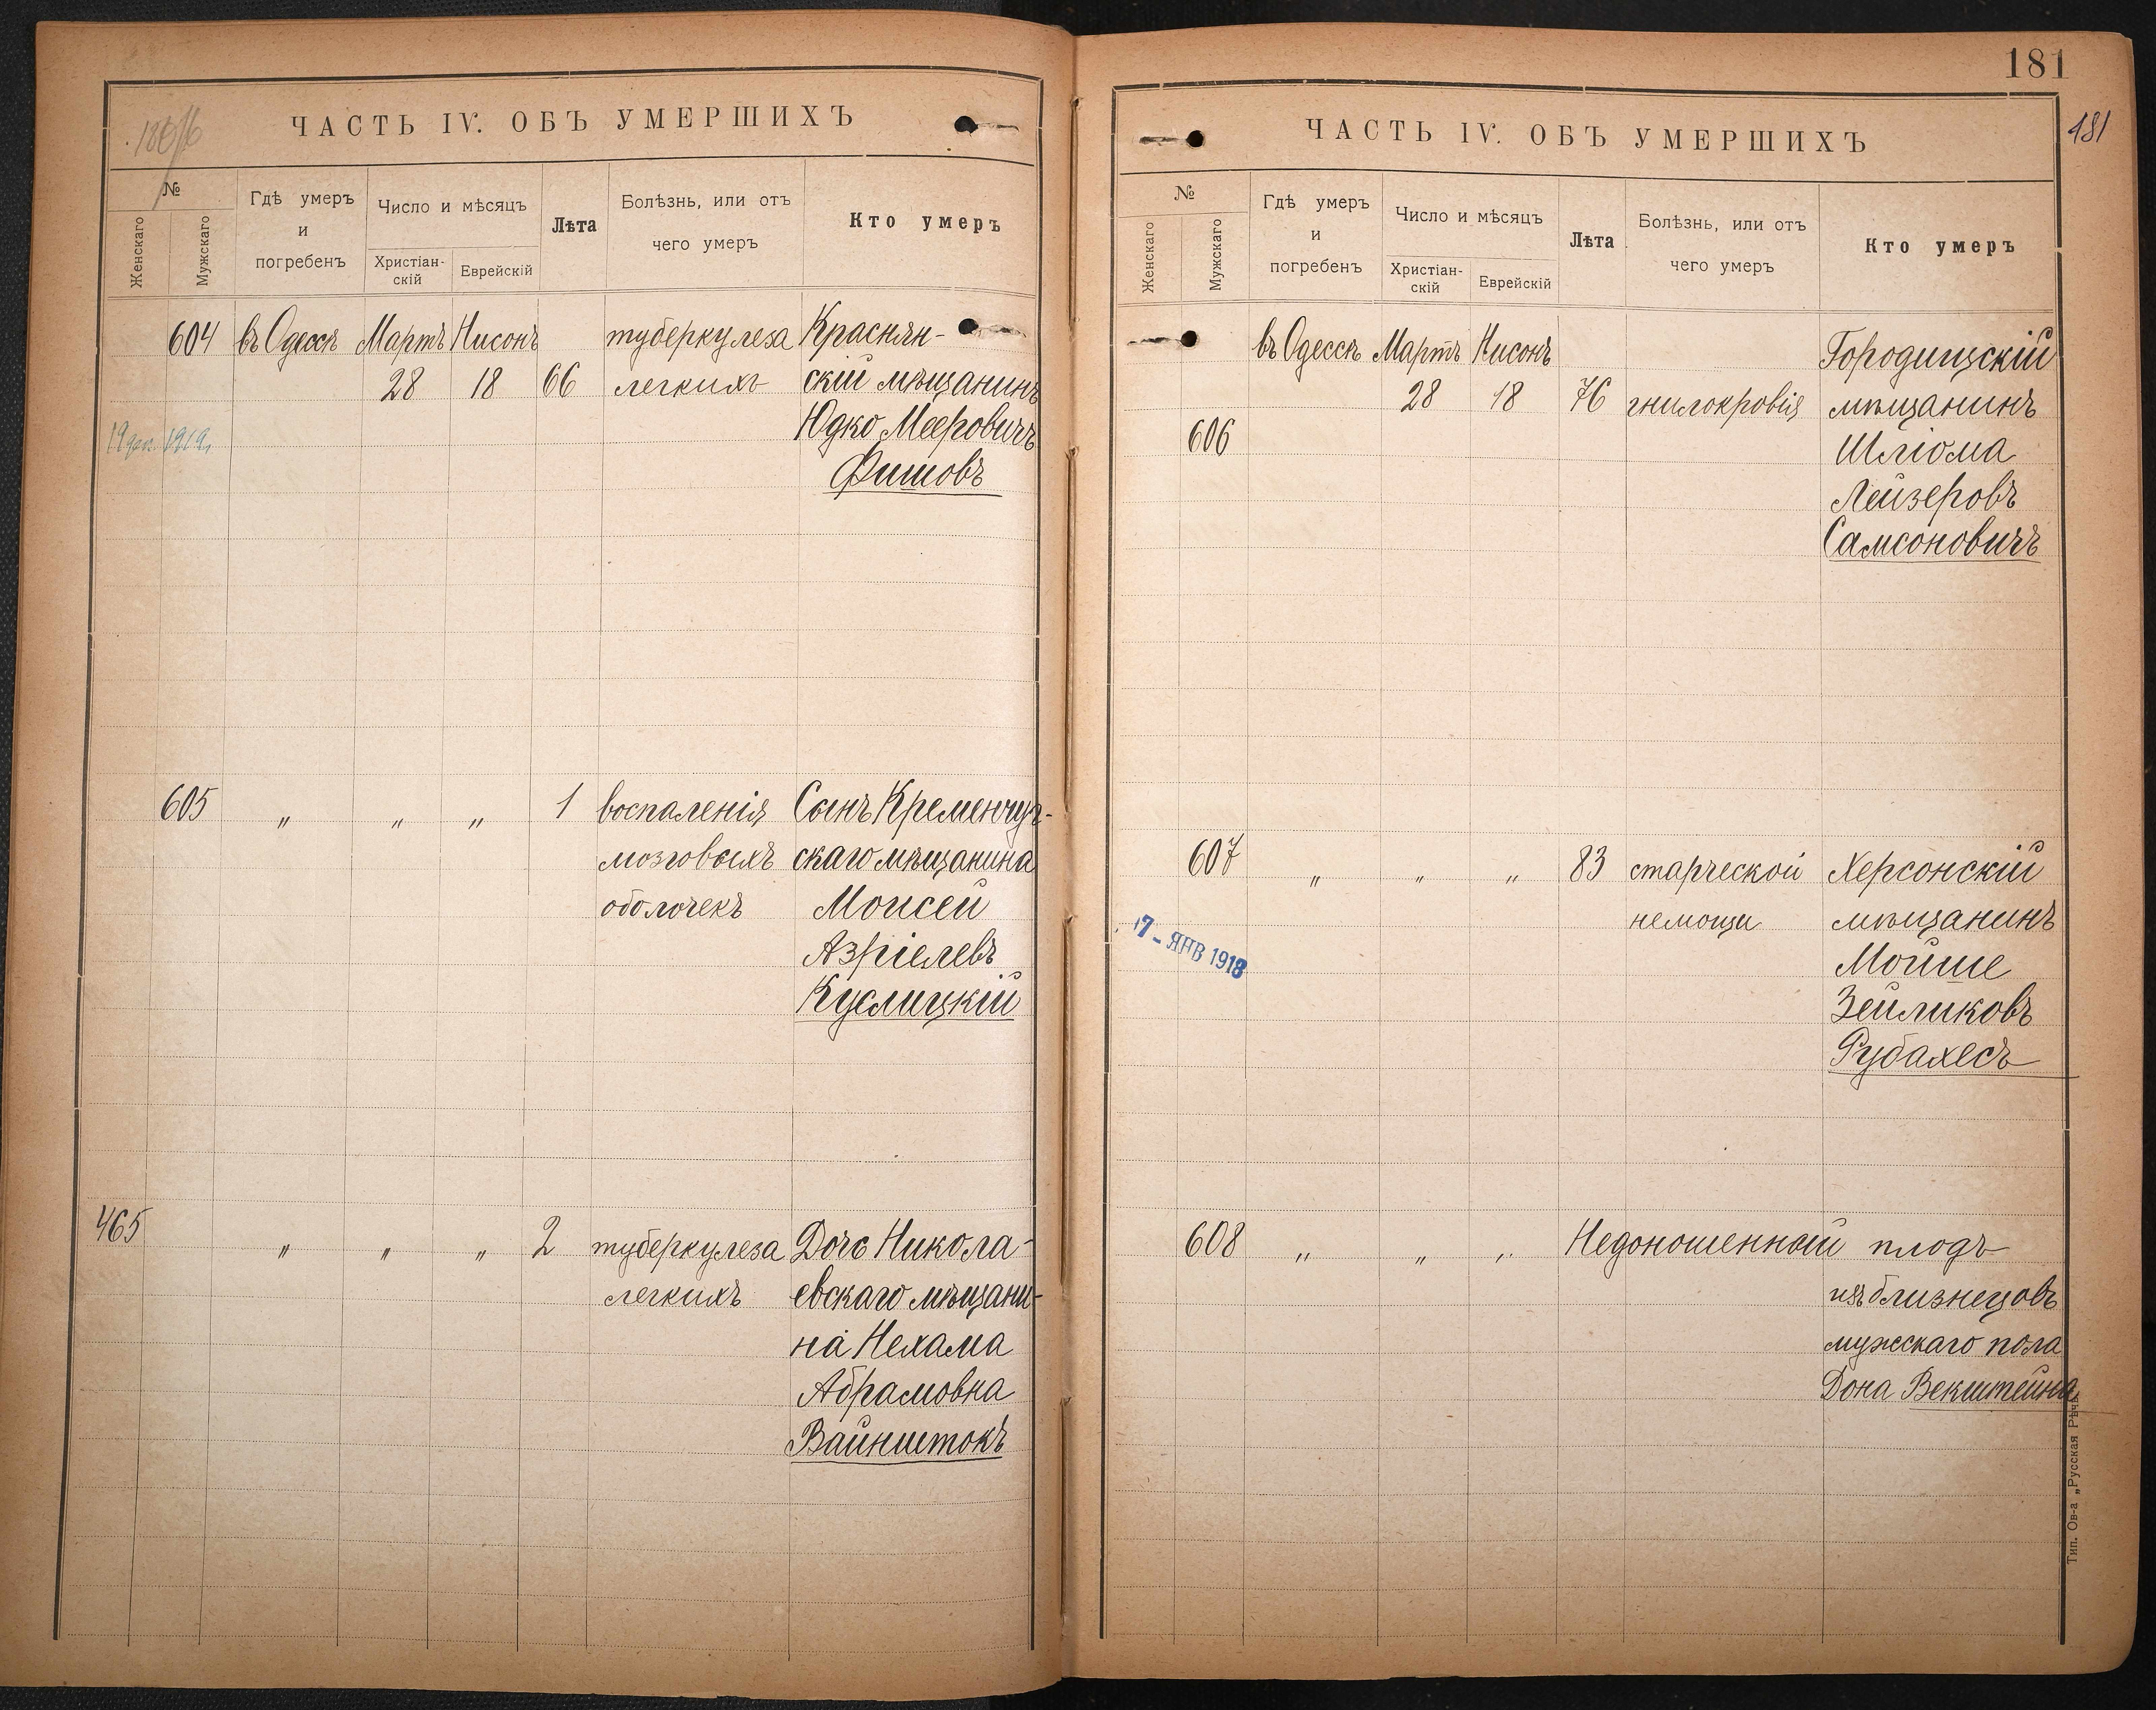 ЧАСТЬ IV. ОБЪ УМЕРШИХЪ
№
Женскаго
Мужскаго
Гдѣ умеръ
и
погребенъ
Число и мѣсяцъ
Христіан-
скій
Еврейскій
Лѣта
Болѣзнь, или отъ
чего умеръ
Кто умеръ
604 въ Одессѣ Мартъ Нисонъ туберкулеза Краснян-
28 18 66 легкихъ скій мѣщанинъ
1919 Юдко Мееровичъ
Фишовъ
605 " " " 1 воспаленія Сынъ Кременчуг-
мозговыхъ скаго мѣщанина
оболочекъ Моисей
Азріелевъ
Куслицкій
465 " " " 2 туберкулеза Дочь Никола-
легкихъ евскаго мѣщани-
на Нехама
Абрамовна
Вайнштокъ
181
181
ЧАСТЬ IV. ОБЪ УМЕРШИХЪ
№
Женскаго
Мужскаго
Гдѣ умеръ
и
погребенъ
Число и мѣсяцъ
Христіан-
скій
Еврейскій
Лѣта
Болѣзнь, или отъ
чего умеръ
Кто умеръ
въ Одессѣ Мартъ Нисонъ Городищскій
28 18 76 гнилокровія мѣщанинъ
606 Шліома
Лейзеровъ
Самсоновичъ
607 " " " 83 старческой Херсонскій
немощи мѣщанинъ
17 - ЯНВ 1918 Мойше
Зейликовъ
Рубахесъ
608 " " " Недоношенный плодъ
изъ близнецовъ
мужскаго пола
Дона Векштейна
Тип. Ов-а „Русская Рѣчь"